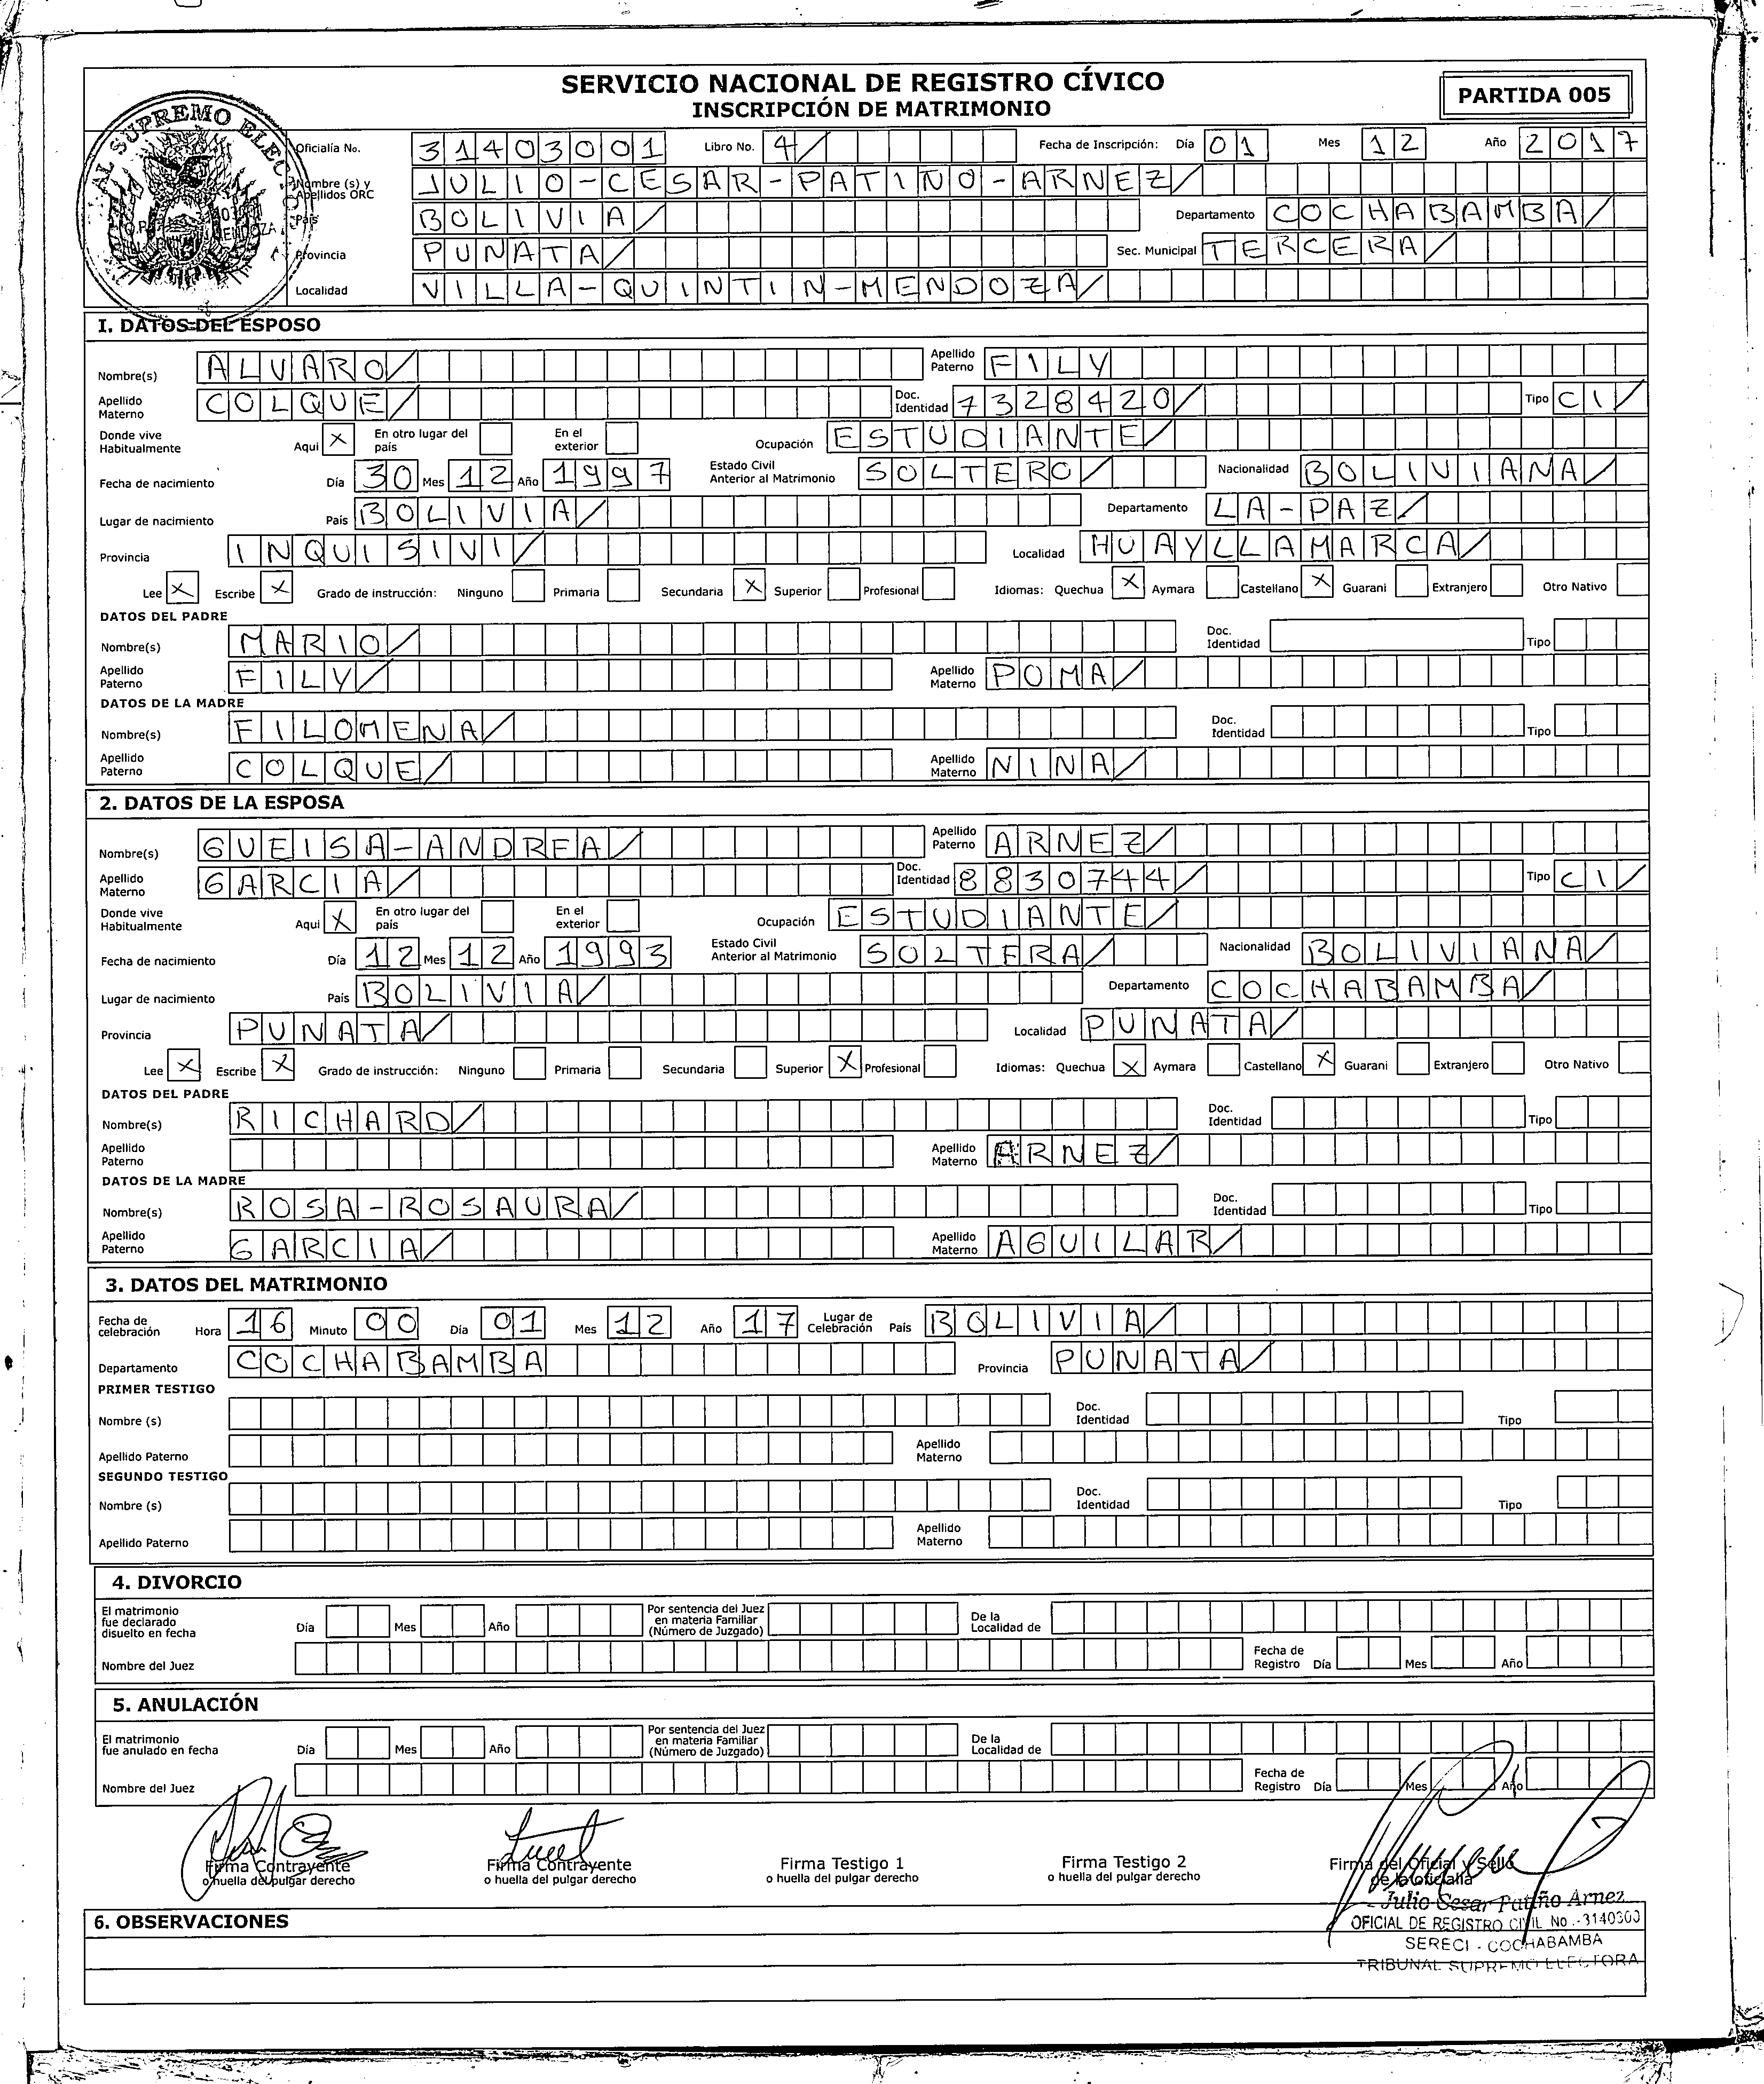 SERVICIO NACIONAL DE REGISTRO CÍVICO
INSCRIPCIÓN DE MATRIMONIO
PARTIDA 005
Oficialía No. 31403001 Libro No. 4/ Fecha de Inscripción: Día 01 Mes 12 Año 2017
Nombre (s) y Apellidos ORC JULIO-CESAR-PATIÑO-ARNEZ/
País BOLIVIA/ Departamento COCHABAMBA/
Provincia PUNATA/ Sec. Municipal TERCERA/
Localidad VILLA-QUINTIN-MENDOZA/
I. DATOS DEL ESPOSO
Nombre(s) ALVARO/ Apellido Paterno FILY
Apellido Materno COLQUE/ Doc. Identidad 7328420/ Tipo CI/
Donde vive Habitualmente Aqui X En otro lugar del país En el exterior Ocupación ESTUDIANTE/
Fecha de nacimiento Día 30 Mes 12 Año 1997 Estado Civil Anterior al Matrimonio SOLTERO/ Nacionalidad BOLIVIANA/
Lugar de nacimiento País BOLIVIA/ Departamento LA-PAZ/
Provincia INQUISIVI/ Localidad HUAYLLAMARCA/
Lee X Escribe X Grado de instrucción: Ninguno Primaria Secundaria X Superior Profesional Idiomas: Quechua X Aymara Castellano X Guarani Extranjero Otro Nativo
DATOS DEL PADRE
Nombre(s) MARIO/ Doc. Identidad Tipo
Apellido Paterno FILY/ Apellido Materno POMA/
DATOS DE LA MADRE
Nombre(s) FILOMENA/ Doc. Identidad Tipo
Apellido Paterno COLQUE/ Apellido Materno NINA/
2. DATOS DE LA ESPOSA
Nombre(s) GUEISA-ANDREA/ Apellido Paterno ARNEZ/
Apellido Materno GARCIA/ Doc. Identidad 8830744/ Tipo CI/
Donde vive Habitualmente Aqui X En otro lugar del país En el exterior Ocupación ESTUDIANTE/
Fecha de nacimiento Día 12 Mes 12 Año 1993 Estado Civil Anterior al Matrimonio SOLTERA/ Nacionalidad BOLIVIANA/
Lugar de nacimiento País BOLIVIA/ Departamento COCHABAMBA/
Provincia PUNATA/ Localidad PUNATA/
Lee X Escribe X Grado de instrucción: Ninguno Primaria Secundaria Superior X Profesional Idiomas: Quechua X Aymara Castellano X Guarani Extranjero Otro Nativo
DATOS DEL PADRE
Nombre(s) RICHARD/ Doc. Identidad Tipo
Apellido Paterno Apellido Materno ARNEZ/
DATOS DE LA MADRE
Nombre(s) ROSA-ROSAURA/ Doc. Identidad Tipo
Apellido Paterno GARCIA/ Apellido Materno AGUILAR/
3. DATOS DEL MATRIMONIO
Fecha de celebración Hora 16 Minuto 00 Día 01 Mes 12 Año 17 Lugar de Celebración País BOLIVIA/
Departamento COCHABAMBA Provincia PUNATA/
PRIMER TESTIGO
Nombre (s) Doc. Identidad Tipo
Apellido Paterno Apellido Materno
SEGUNDO TESTIGO
Nombre (s) Doc. Identidad Tipo
Apellido Paterno Apellido Materno
4. DIVORCIO
El matrimonio fue declarado disuelto en fecha Día Mes Año Por sentencia del Juez en materia Familiar (Número de Juzgado) De la Localidad de
Nombre del Juez Fecha de Registro Día Mes Año
5. ANULACIÓN
El matrimonio fue anulado en fecha Día Mes Año Por sentencia del Juez en materia Familiar (Número de Juzgado) De la Localidad de
Nombre del Juez Fecha de Registro Día Mes Año
Firma Contrayente Firma Contrayente Firma Testigo 1 Firma Testigo 2 Firma del Oficial y Sello
o huella del pulgar derecho o huella del pulgar derecho o huella del pulgar derecho o huella del pulgar derecho de la oficialía
Julio Cesar Patiño Arnez
6. OBSERVACIONES
OFICIAL DE REGISTRO CIVIL No.-3140300
SERECI - COCHABAMBA
TRIBUNAL SUPREMO ELECTORA